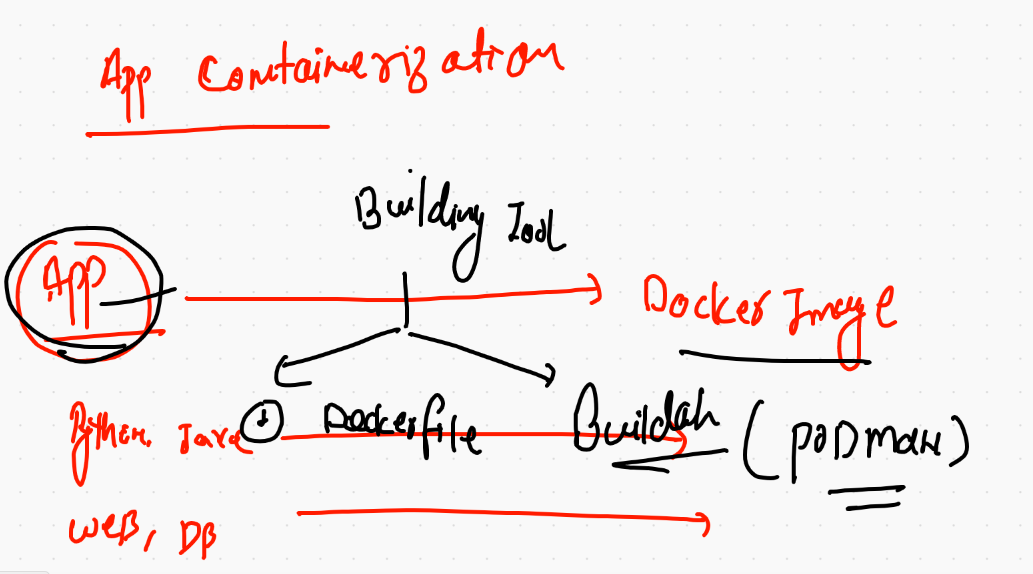 App Containerization
Building Tool
App
Docker Image
Python, Java ① Dockerfile Buildah (PODman)
WEB, DB